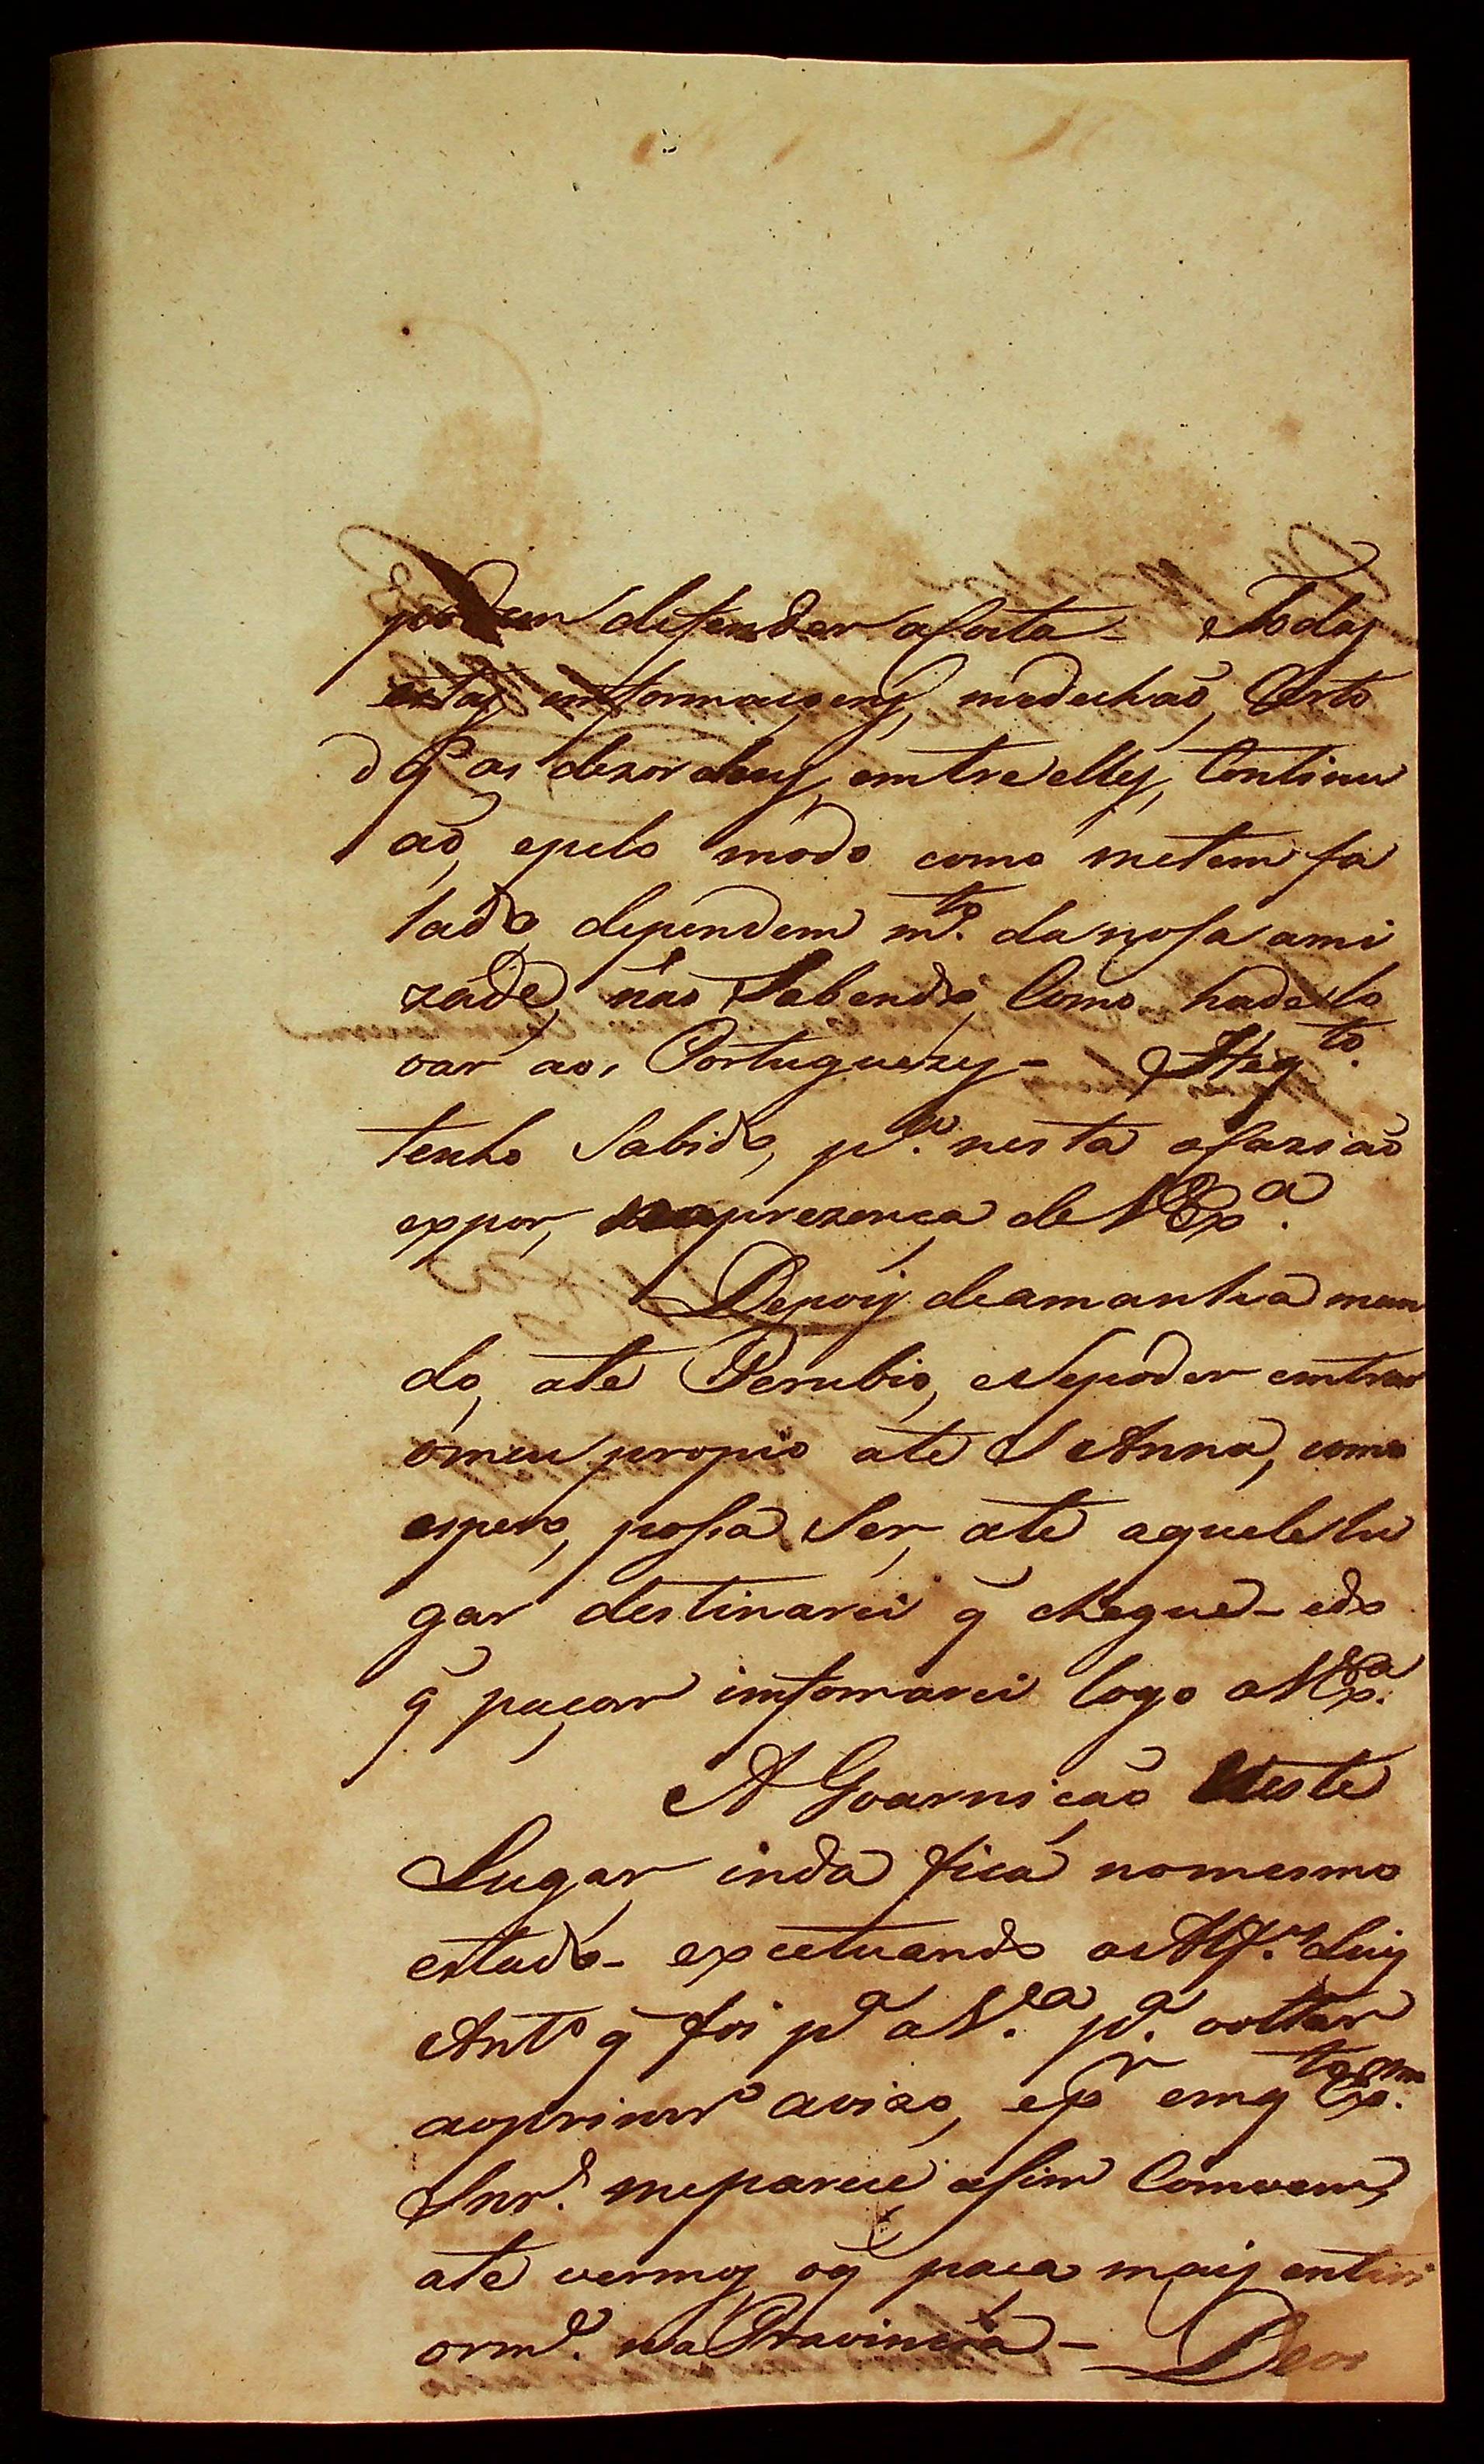 podem defender aCosta - Todas
estas imformaçoens, medeichaõ, Certo
d q̃ as dezordens, emtre elles, Continu
aõ, epelo modo como metem fa
lado, dependem m.to da nosa ami
zade, não Sabendo, Como hadelo
var aos Portuguezes - Hé q.to
tenho Sabido, p.a nesta ocaziaõ
expor, naprezença de VEx.a
Depois deamanhã man
do, ate Perubio, eSepoder emtrar
omeu propio ate S Anna, como
espero, posa Ser, ate aquele lu
gar destinarei q̃ chegue - edo
q̃ paçar imformarei logo aVEx.a
A Goarnição deste
Lugar inda fica nomesmo
estado - excetuando o Alf.es Luis
Ant.o q̃ foi p.a aV.a p.a voltar
aoprimr.o avizo, ep.r emq.to Ex.mo
Snr.e meparece asim Comvem,
ate vermos oq̃ paça mais entiri
orm.e na Provincia - Deos